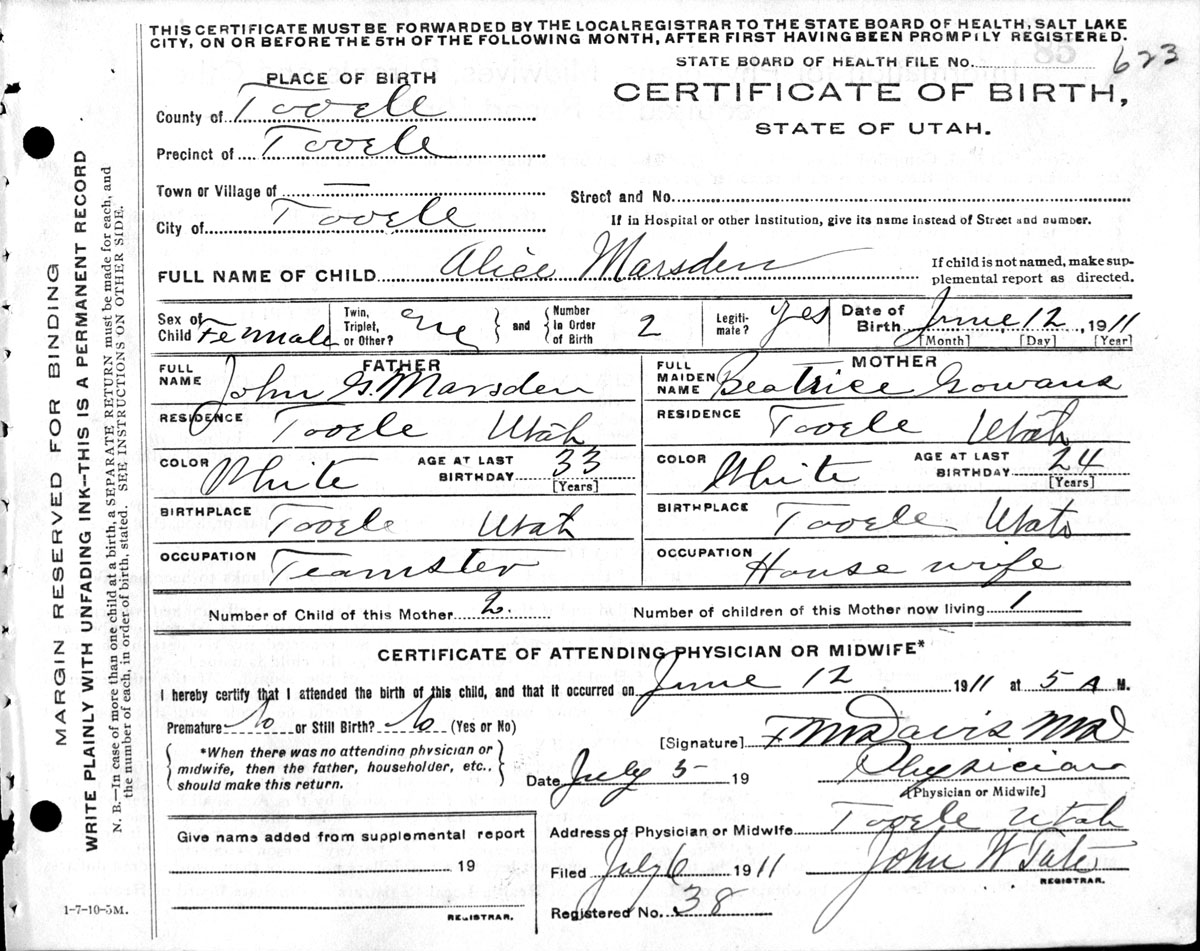 THIS CERTIFICATE MUST BE FORWARDED BY THE LOCALREGISTRAR TO THE STATE BOARD OF HEALTH, SALT LAKE
CITY, ON OR BEFORE THE 5TH OF THE FOLLOWING MONTH, AFTER FIRST HAVING BEEN PROMPILY REGISTERED.
STATE BOARD OF HEALTH FILE No. 623
PLACE OF BIRTH
CERTIFICATE OF BIRTH,
STATE OF UTAH.
County of Tooele
Precinct of Tooele
Town or Village of —
Street and No.
City of Tooele
If in Hospital or other Institution, give its name instead of Street and number.
FULL NAME OF CHILD Alice Marsden
If child is not named, make sup-
plemental report as directed.
Sex of Child Female
Twin, Triplet, or Other? One } and { Number in Order of Birth 2
Legiti-mate? Yes
Date of Birth June 12, 1911
[Month] [Day] [Year]
FATHER
FULL NAME John G. Marsden
RESIDENCE Tooele Utah
COLOR White AGE AT LAST BIRTHDAY 33
[Years]
BIRTHPLACE Tooele Utah
OCCUPATION Teamster
MOTHER
FULL MAIDEN NAME Beatrice Gowans
RESIDENCE Tooele Utah
COLOR White AGE AT LAST BIRTHDAY 24
[Years]
BIRTHPLACE Tooele Utah
OCCUPATION House wife
Number of Child of this Mother 2. Number of children of this Mother now living 1
CERTIFICATE OF ATTENDING PHYSICIAN OR MIDWIFE*
I hereby certify that I attended the birth of this child, and that it occurred on June 12 1911 at 5 A M.
Premature No or Still Birth? No (Yes or No)
*When there was no attending physician or
midwife, then the father, householder, etc.,
should make this return.
[Signature] F M Davis MD
Date July 5 19 Physician
(Physician or Midwife]
Give name added from supplemental report
19
REGISTRAR.
Address of Physician or Midwife Tooele Utah
Filed July 6 1911 John W Tate
REGISTRAR.
Registered No. 38
1-7-10-5M.
MARGIN RESERVED FOR BINDING
WRITE PLAINLY WITH UNFADING INK—THIS IS A PERMANENT RECORD
N. B.—In case of more than one child at a birth, a SEPARATE RETURN must be made for each, and
the number of each, in order of birth, stated. SEE INSTRUCTIONS ON OTHER SIDE.